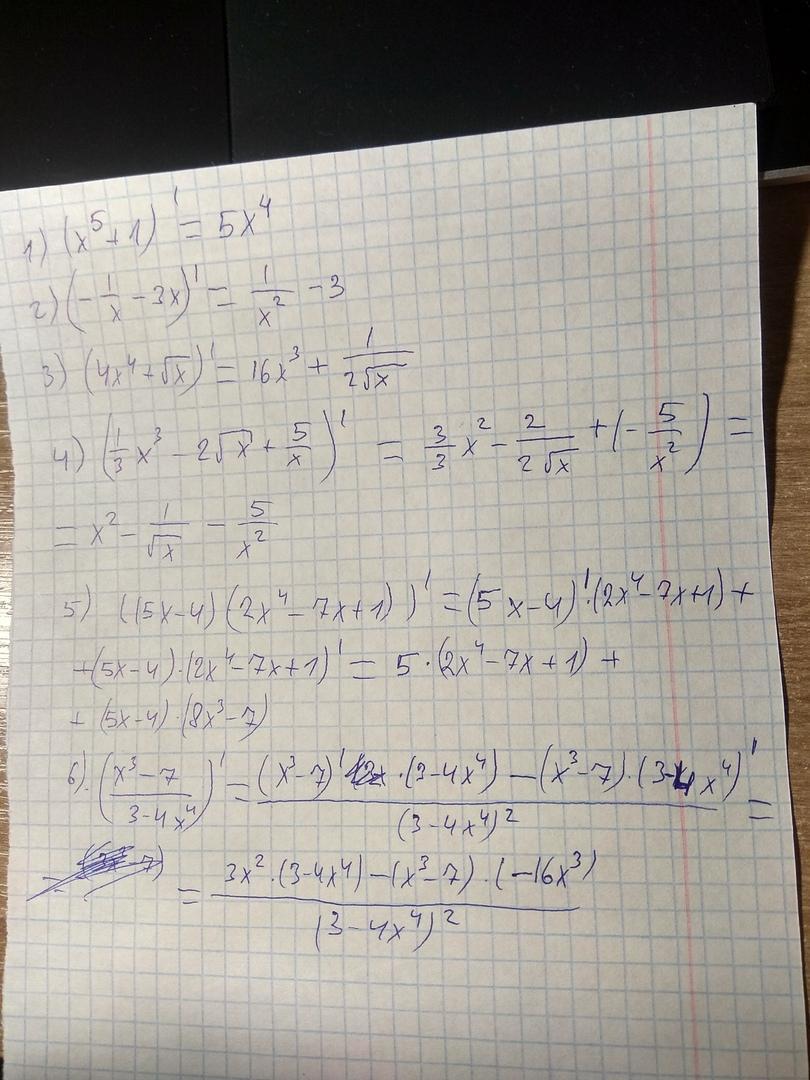 1) (x⁵+1)' = 5x⁴
2) (-1/x - 3x)' = 1/x² - 3
3) (4x⁴+√x)' = 16x³ + 1/(2√x)
4) (1/3 x³ - 2√x + 5/x)' = 3/3 x² - 2/(2√x) + (-5/x²) =
= x² - 1/√x - 5/x²
5) ((5x-4)(2x⁴-7x+1))' = (5x-4)'·(2x⁴-7x+1)+
+(5x-4)·(2x⁴-7x+1)' = 5·(2x⁴-7x+1)+
+ (5x-4)·(8x³-7)
6). ((x³-7)/(3-4x⁴))' = ((x³-7)'·(3-4x⁴)-(x³-7)·(3-4x⁴)')/(3-4x⁴)² =
= (3x²·(3-4x⁴)-(x³-7)·(-16x³))/(3-4x⁴)²